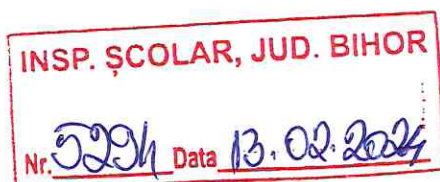 INSP. ȘCOLAR, JUD. BIHOR
Nr. 5294 Data 13.02.2024